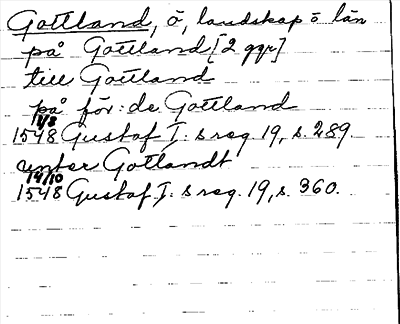 Gottland, ö, landskap o län
på Gottland [2 ggr]
till Gottland
på för: de Gottland
1/8
1548 Gustaf I: s reg. 19, s. 289.
unter Gotlandt
14/10
1548 Gustaf I: s reg. 19, s. 360.